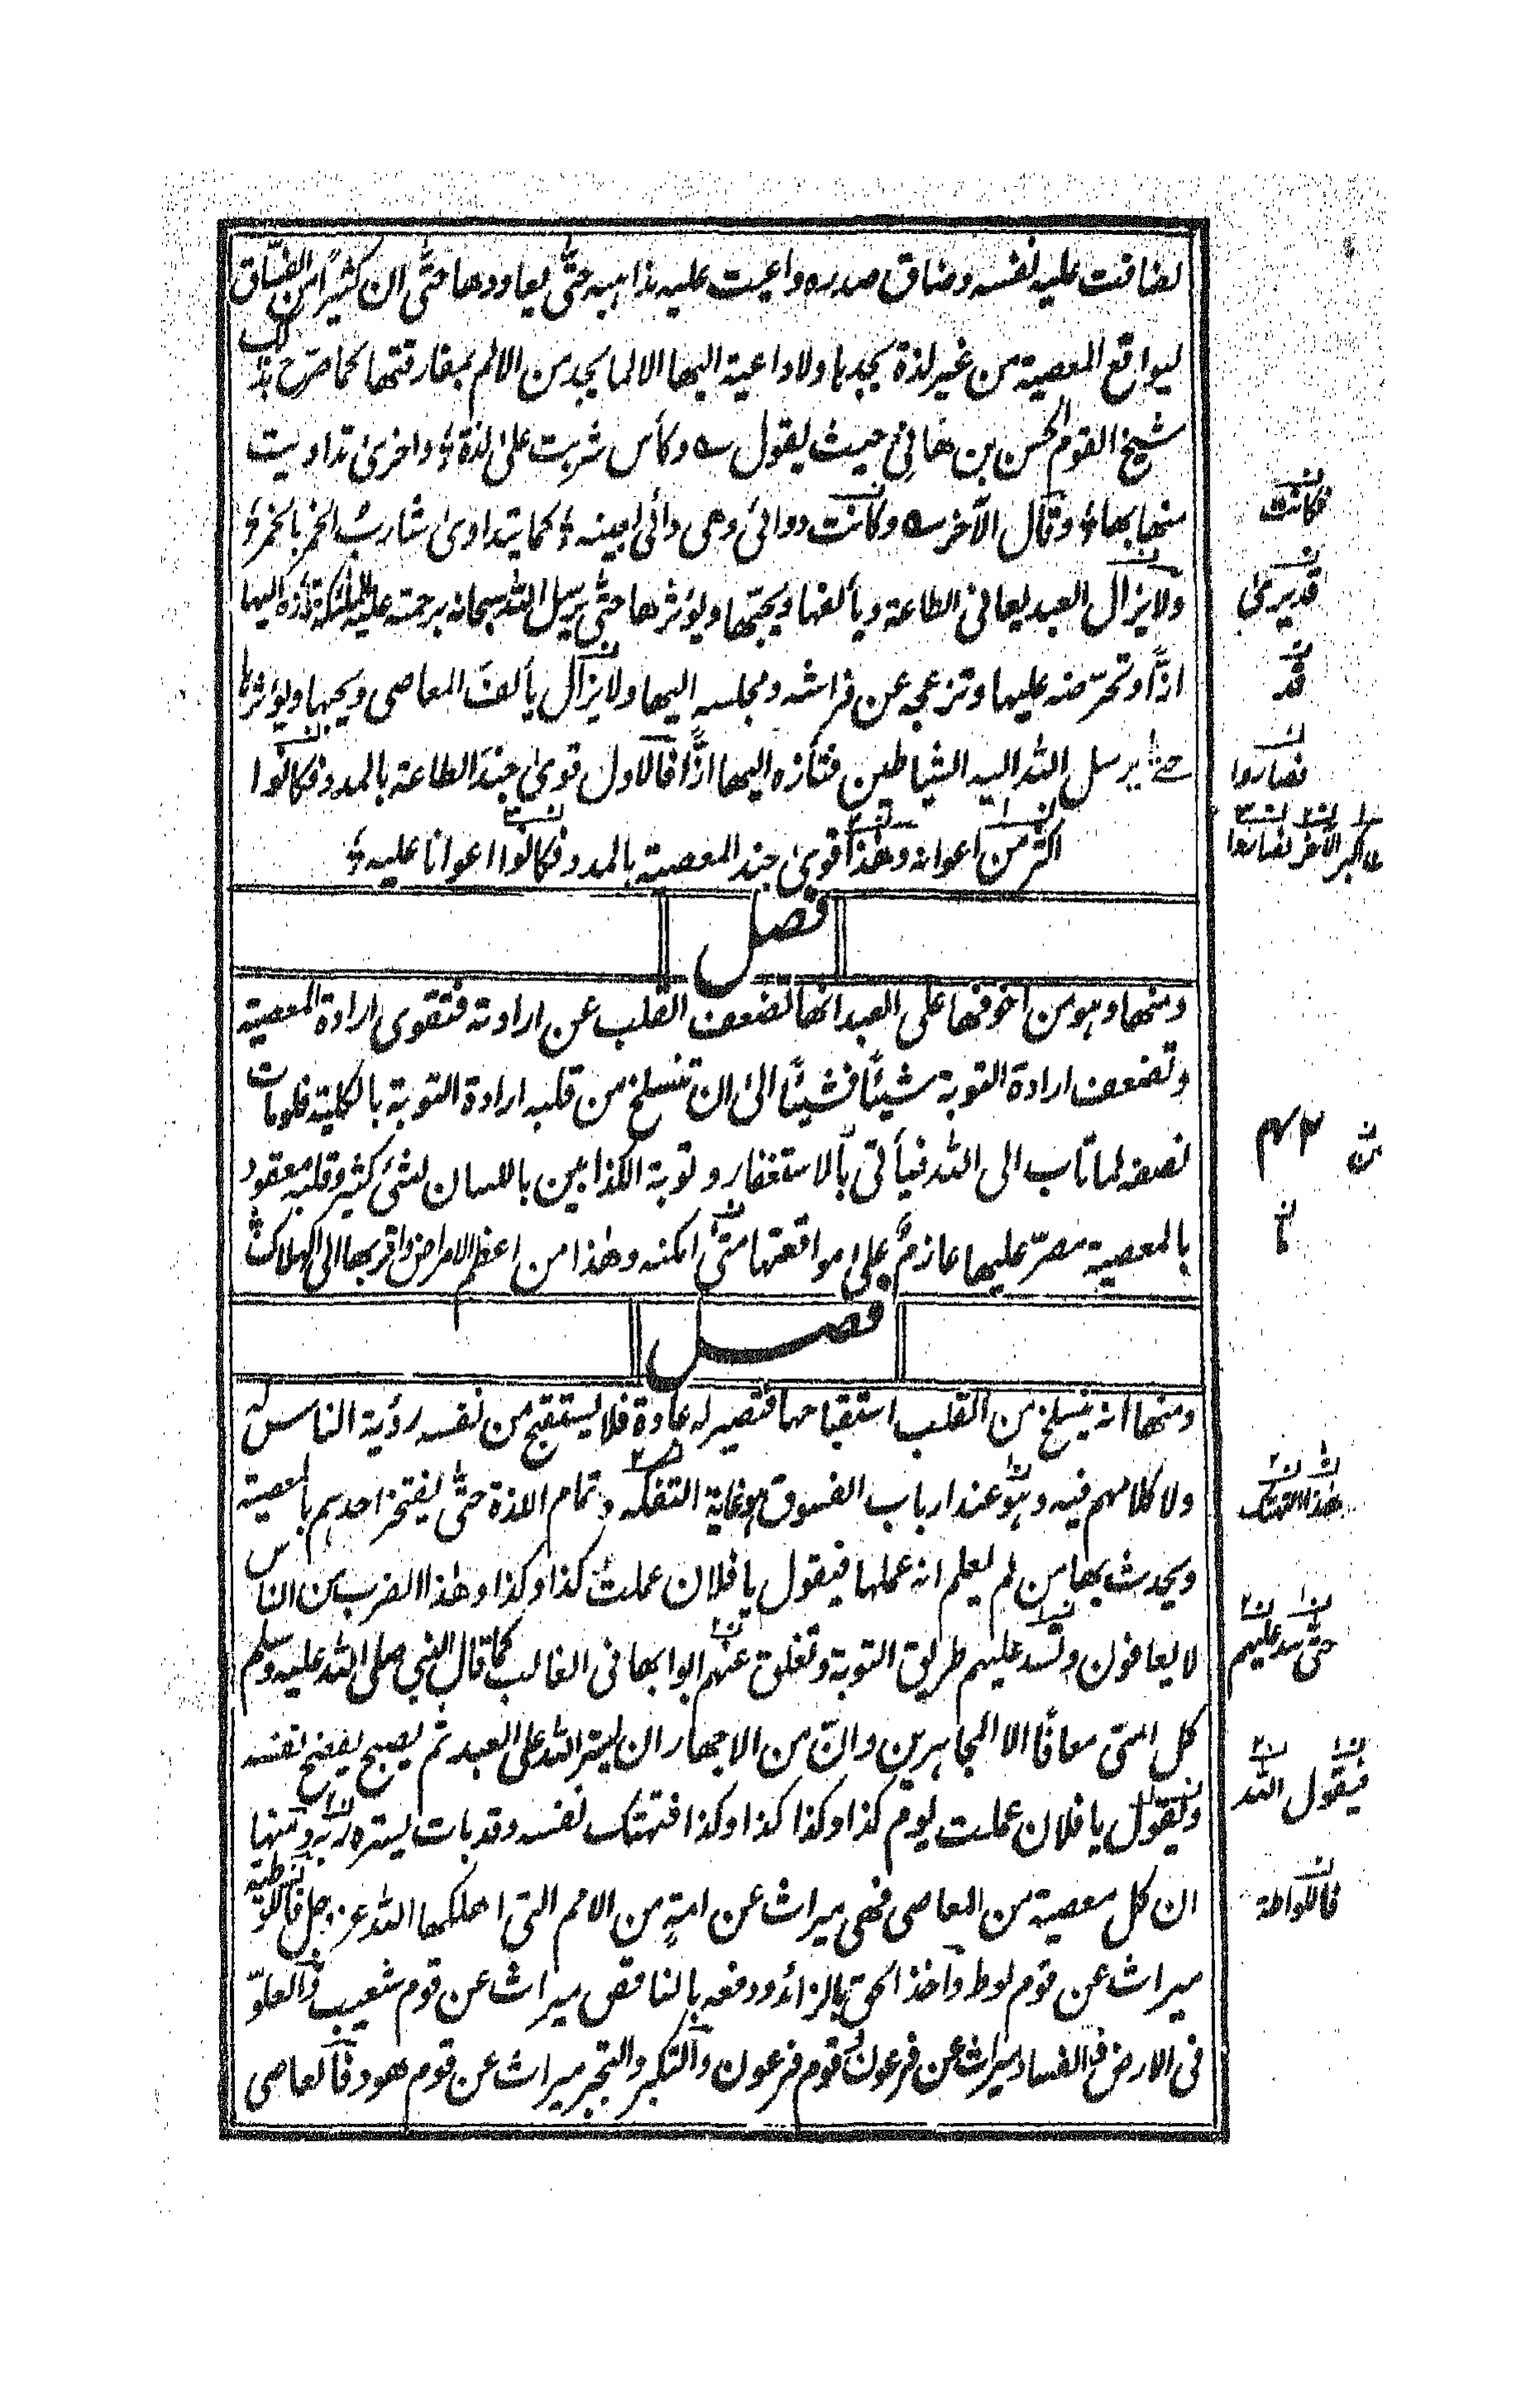 لضاقت عليه نفسه وضاق صدره واعيت عليه مذاهبه حتّٰى يعاودها حتّٰى ان كثيراً من الفسّاق
ليواقع المعصية من غير لذة يجدها ولا داعية اليها الا لما يجد من الالم بمفارقتها كما صرّح بذلك
شيخ القوم الحسن بن هانئ حيث يقول وكأس شربت علىٰ لذة واخرىٰ تداويت
منها بها وقال الآخر وكانت دوائى وهى دائى بعينه كما يتداوىٰ شاربُ الخمر بالخمر
ولايزال العبد يعانى الطاعة ويألفها ويحبّها ويؤثرها حتّٰى يرسل الله سبحانه برحمته عليه الملٰئكة تأزه اليها
ازًّا وتحرّضه عليها وتزعجه عن فراشه ومجلسه اليها ولايزال يألف المعاصى ويحبها ويؤثرها
حتّٰى يرسل الله اليه الشياطين فتأزه اليها ازًّا فالاول قوىٰ جندَ الطاعة بالمدد فكانوا
اكثر من اعوانه وهٰذا قوىٰ جند المعصية بالمدد فكانوا اعوانا عليه
فصل
ومنها وهو من اخوفها على العبد انها تضعف القلب عن ارادته فتقوى ارادة المعصية
وتضعف ارادة التوبة شيئًا فشيئًا الىٰ ان تنسلخ من قلبه ارادة التوبة بالكلية فلومات
نصفه لما تاب الى الله فيأتى بالاستغفار وتوبة الكذابين باللسان لشئ كثير وقلبه معقود
بالمعصية مصرّ عليها عازمٌ علىٰ مواقعتها متىٰ امكنه وهٰذا من اعظم الامراض واقربها الى الهلاك
فصل
ومنها انه ينسلخ من القلب استقباحها فتصير له عادة فلا يستقبح من نفسه رؤية الناس له
ولا كلامهم فيه وهو عند ارباب الفسوق هو غاية التفكه وتمام اللذة حتّٰى يفتخر احدهم بالمعصية
ويحدث بها من لم يعلم انه عملها فيقول يا فلان عملتُ كذا وكذا وهٰذا الضرب من الناس
لا يعافون وتسد عليهم طريق التوبة وتغلق عنهم ابوابها فى الغالب كما قال النبي صلى الله عليه وسلم
كل امتى معافًا الا المجاهرين وانّ من الاجهار ان يستر الله على العبد ثم يصبح يفضح نفسه
ويقول يا فلان عملت يوم كذا وكذا كذا وكذا فتهتك نفسه وقد بات يستره ربه ومنها
ان كل معصية من المعاصى فهى ميراث عن امةٍ من الامم التى اهلكها الله عز وجل فاللوطية
ميراث عن قوم لوط وآخذ الحق بالزائد ودفعه بالناقص ميراث عن قوم شعيب والعلوّ
فى الارض فالفساد ميراث عن فرعون وقوم فرعون والتكبر والتجبر ميراث عن قوم هود فالعاصى
فكانت
قد يربىٰ
قد
فصاروا
الآخر فصاروا
بن
٤٢
ما
هٰذا التهتك
حتّٰى سد عليهم
فيقول الله
فاللواطة